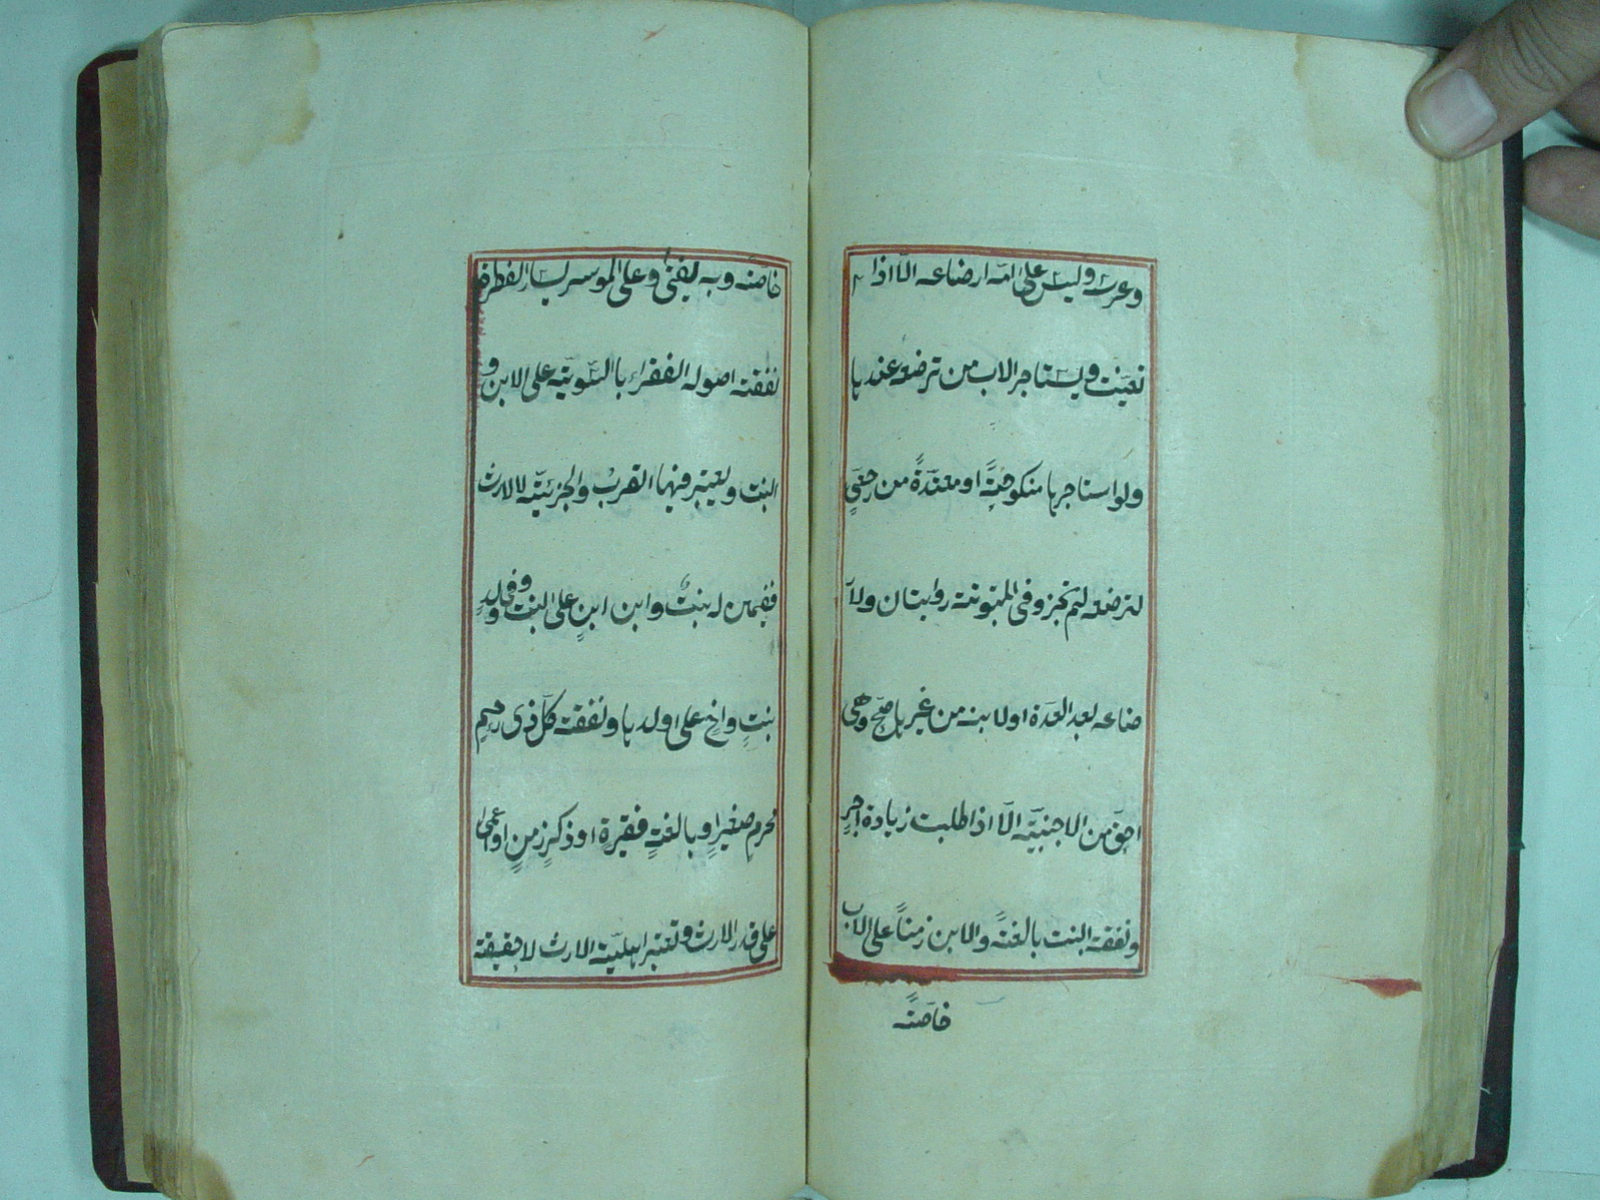 وعرسه وليس على امه ارضاعه الا اذا
تعينت ويستاجر الاب من ترضعه عندها
ولو استاجرها منكوحةً او معتدةً من رجعيٍ
لترضعه لم تجز وفي المبتوتة روايتان ولا
ضاعه بعد العدة او لابنه من غيرها صح وهي
احق من الاجنبية الا اذا طلبت زيادة اجرٍ
ونفقة البنت بالغةً والابن زمناً على الاب
خاصةً
خاصة وبه يفتى وعلى الموسر يسار الفطرة
نفقة اصوله الفقراء بالسوية على الابن و
البنت ويعتبر فيها القرب والجزئية لا الارث
ففيمن له بنتٌ وابن ابنٍ على البنت وفي ولد
بنتٍ واخٍ على ولدها ونفقة كل ذي رحمٍ
محرمٍ صغيرٍ او بالغةٍ فقيرة او ذكرٍ زمنٍ او اعمى
على قدر الارث وتعتبر اهلية الارث لا حقيقته